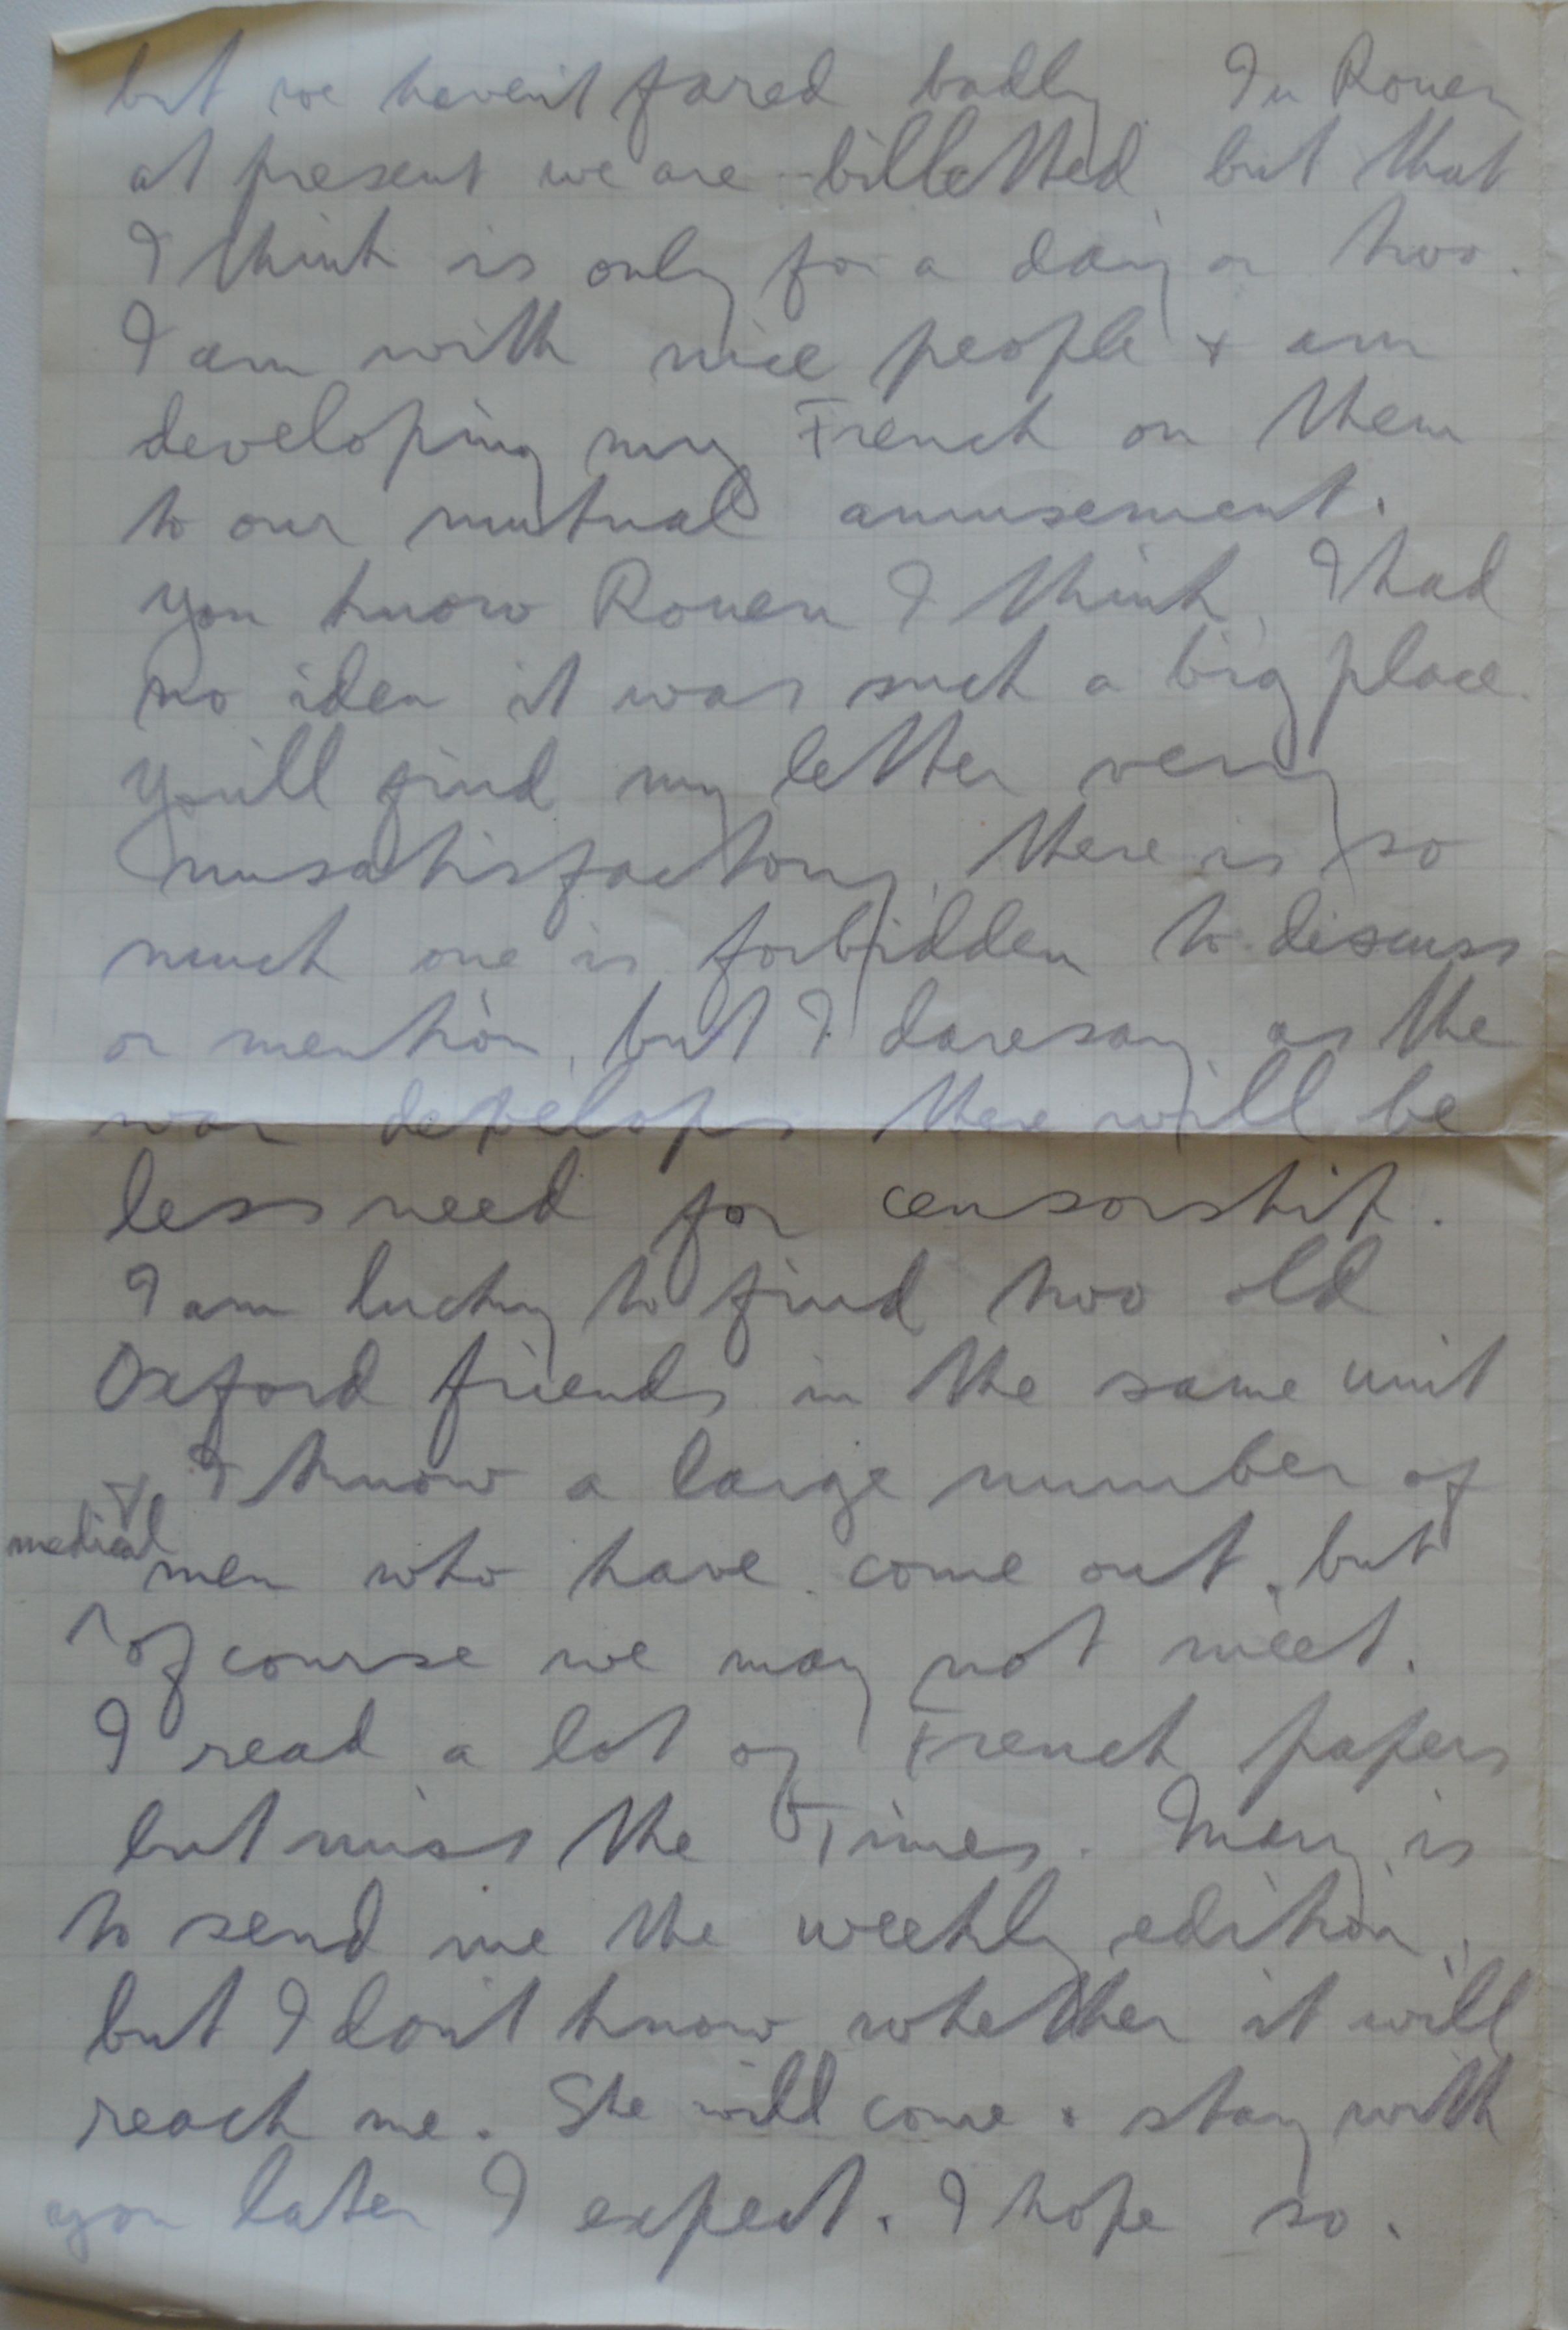 but we haven't fared badly In Rouen
at present we are billetted but that
I think is only for a day or two.
I am with nice people + am
developing my French on them
to our mutual amusement.
You know Rouen I think, I had
no idea it was such a big place.
You'll find my letter very
unsatisfactory, there is so
much one is forbidden to discuss
or mention, but I daresay as the
war develops there will be
less need for censorship.
I am lucky to find two old
Oxford friends in the same unit
+ I know a large number of
medical men who have come out, but
of course we may not meet.
I read a lot of French papers
but miss the Times. Mary is
to send me the weekly edition,
but I don't know whether it will
reach me. She will come + stay with
you later I expect. I hope so.